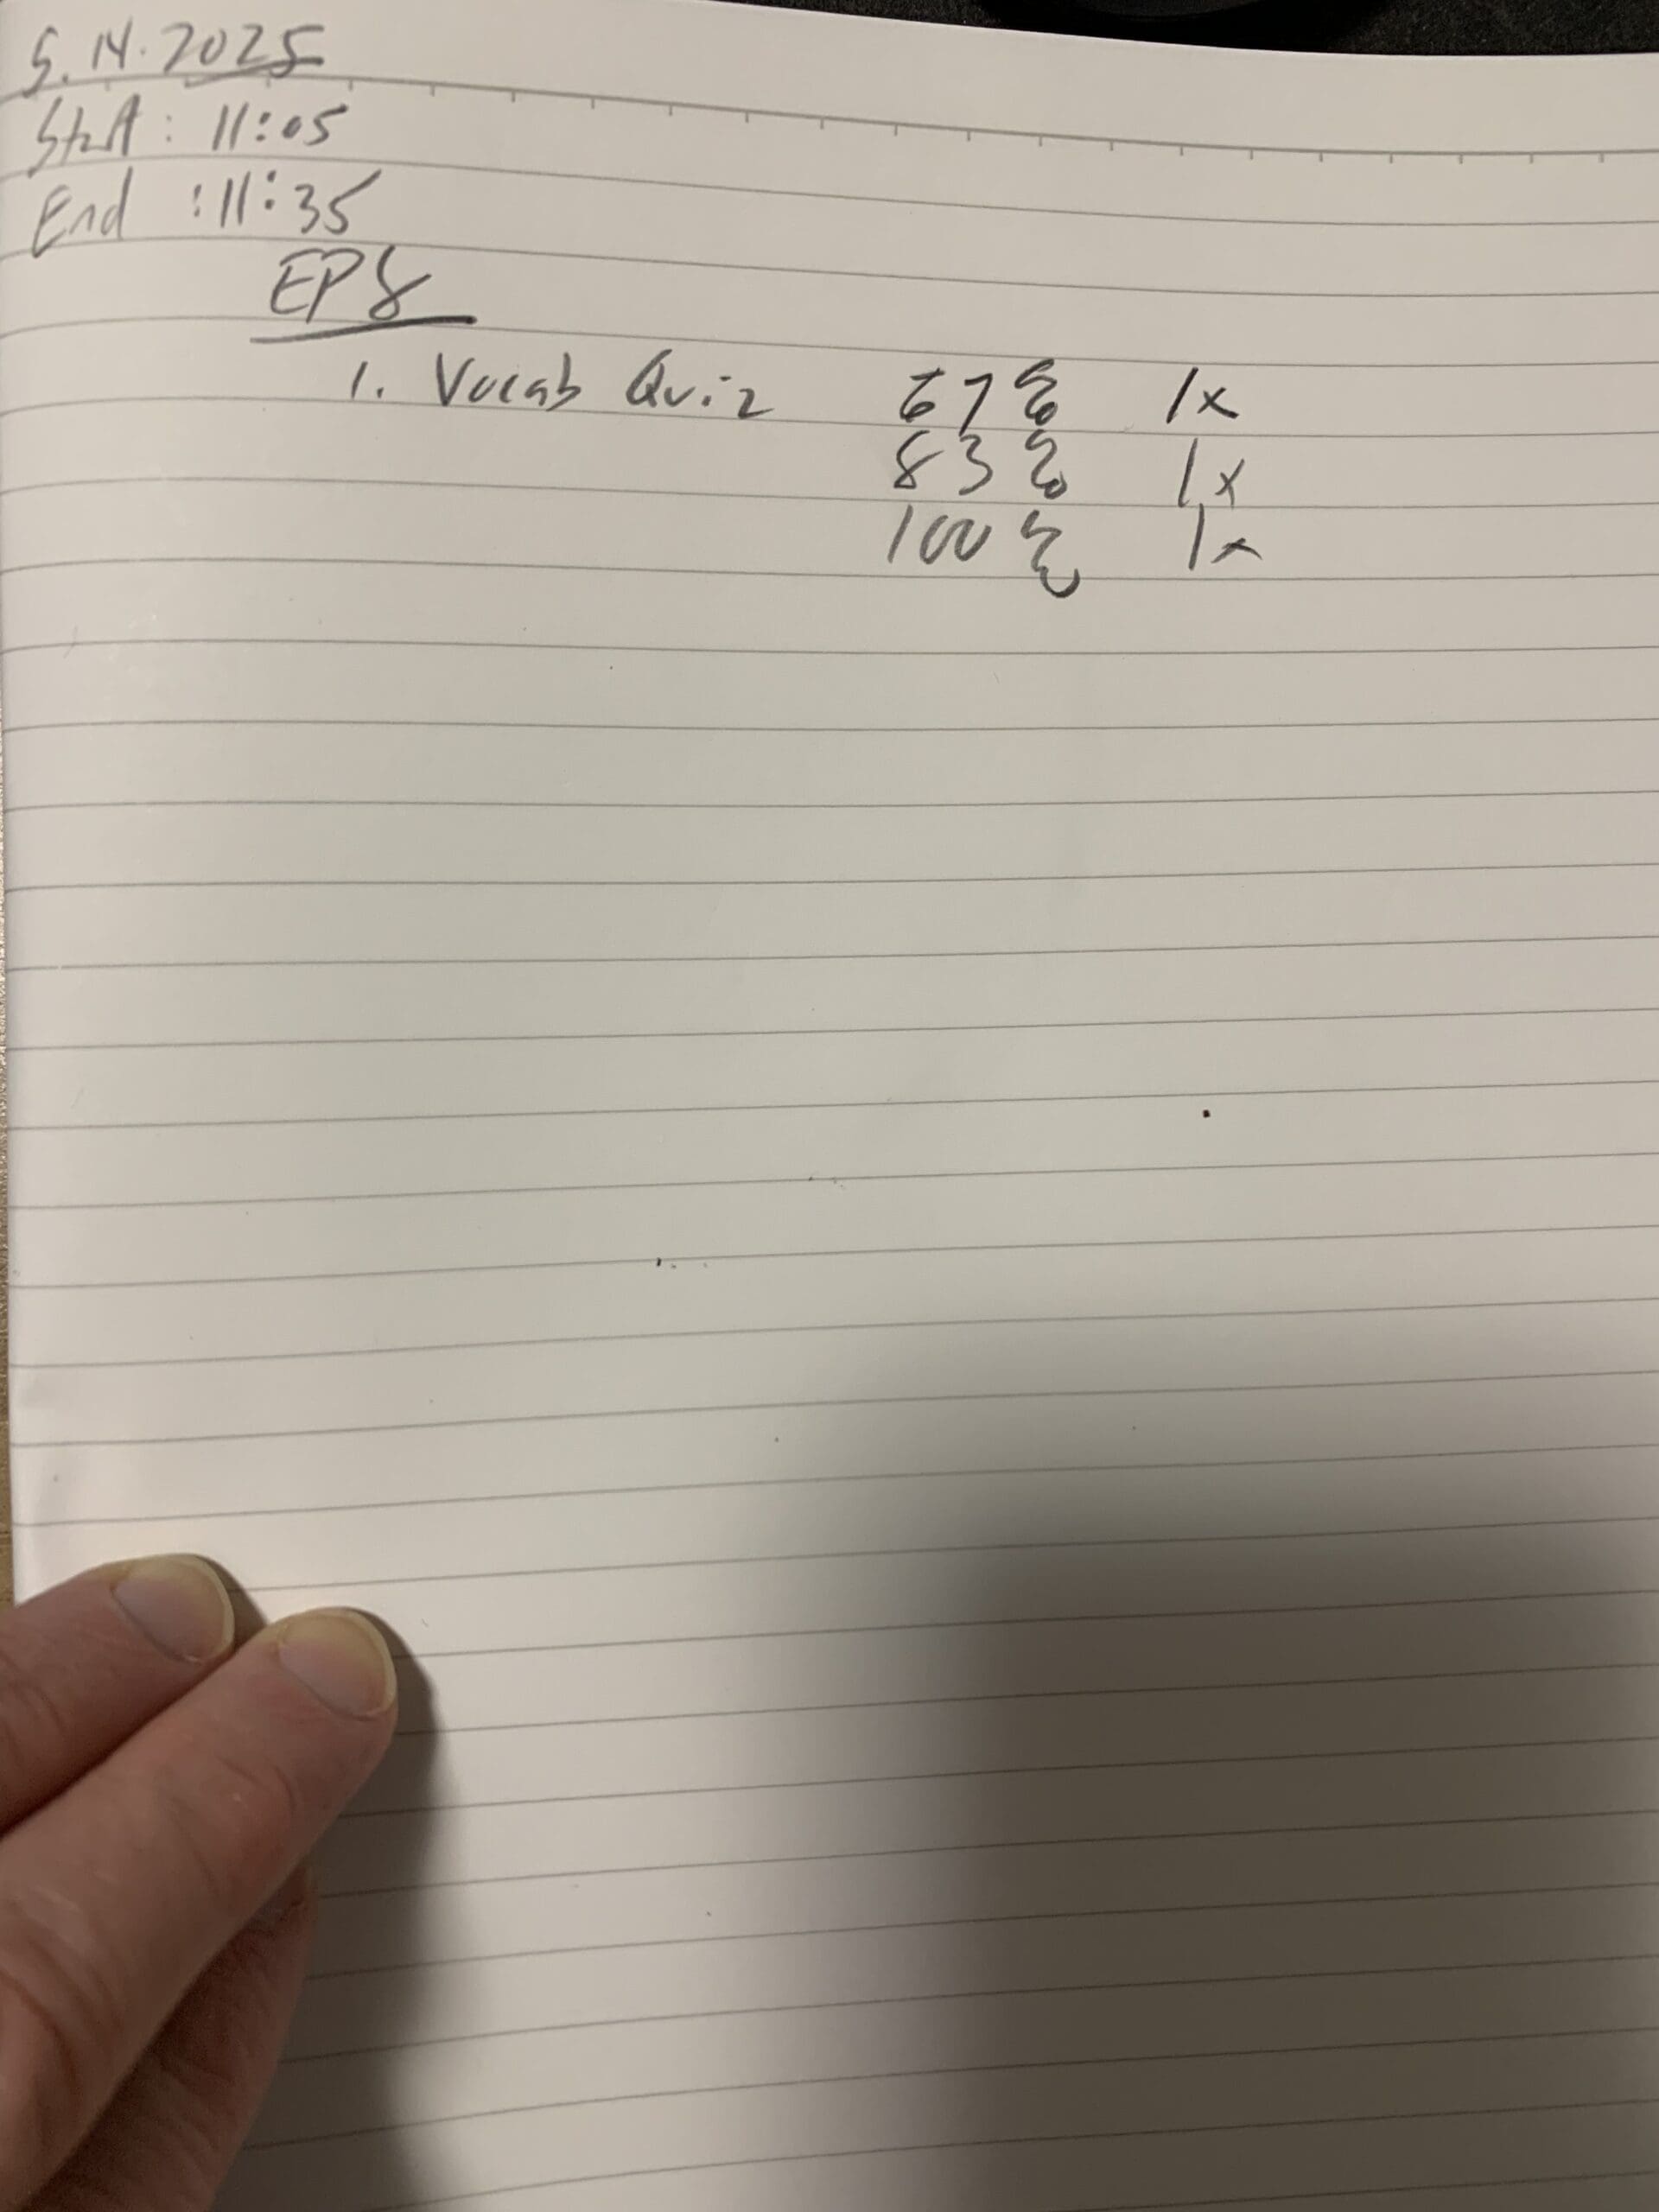 5.14.2025
Start : 11:05
End : 11:35
EP8
1. Vocab Quiz 67% 1x
83% 1x
100% 1x